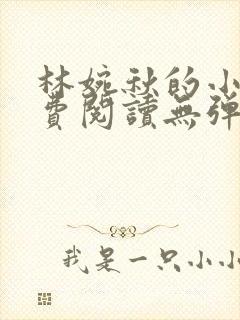 林婉秋的小
費閱讀無彈
我是一只小小